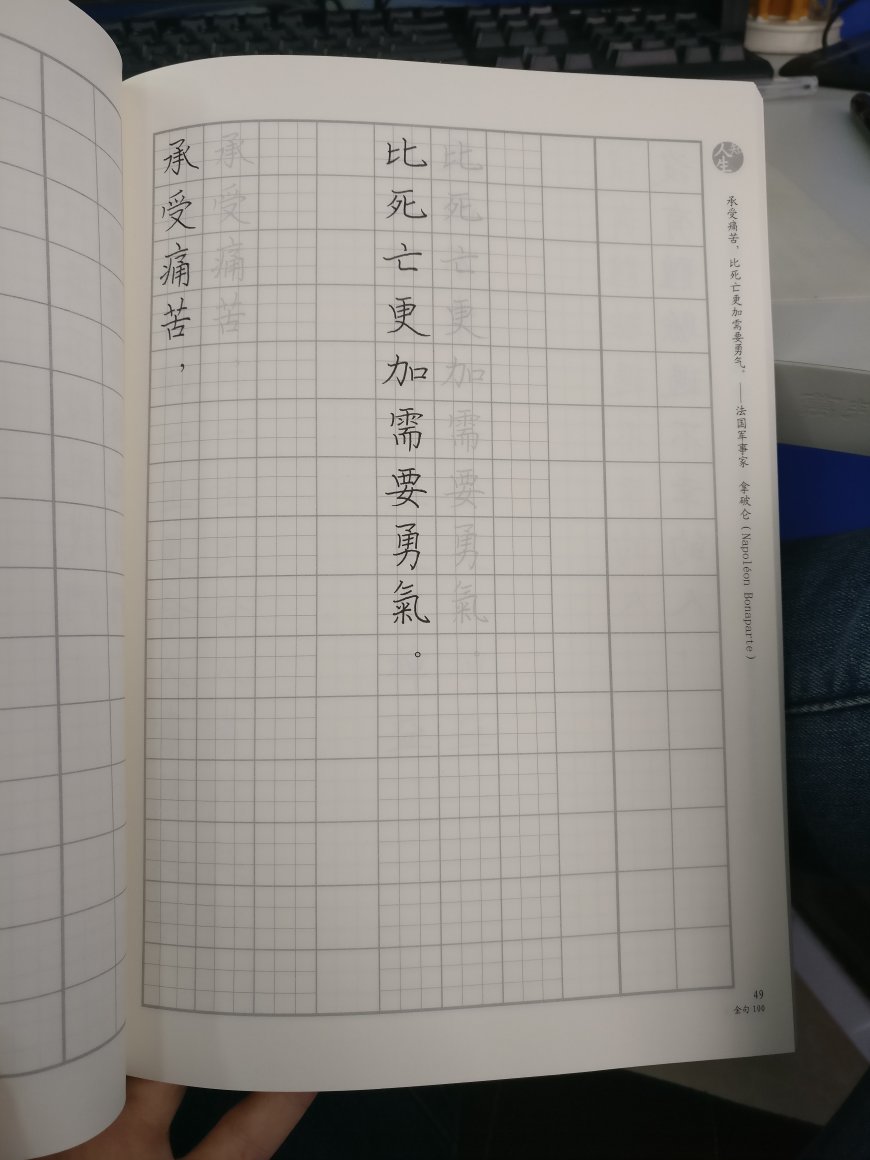 承受痛苦，
承受痛苦
比死亡更加需要勇氣。
比死亡更加需要勇氣。
人生
承受痛苦，比死亡更加需要勇气。——法国军事家 拿破仑（Napoléon Bonaparte）
49
金句100